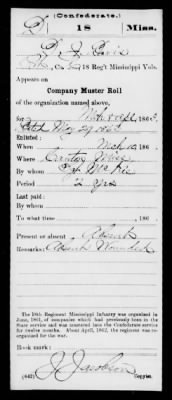 (Confederate.)
D 18 Miss.
D. J. Davis
Co. 18 Reg't Mississippi Vols.
Appears on
Company Muster Roll
of the organization named above,
for 186
dated May 29 186
Enlisted:
When Mch 10, 186
Where Canton Miss
By whom Cpt McKie
Period 2 yrs
Last paid:
By whom
To what time , 186
Present or absent Absent
Remarks: Absent Wounded
The 18th Regiment Mississippi Infantry was organized in
June, 1861, of companies which had previously been in the
State service and was mustered into the Confederate service
for twelve months. About April, 1862, the regiment was re-
organized for the war.
Book mark:
J. Jacobson
(642) Copyist.